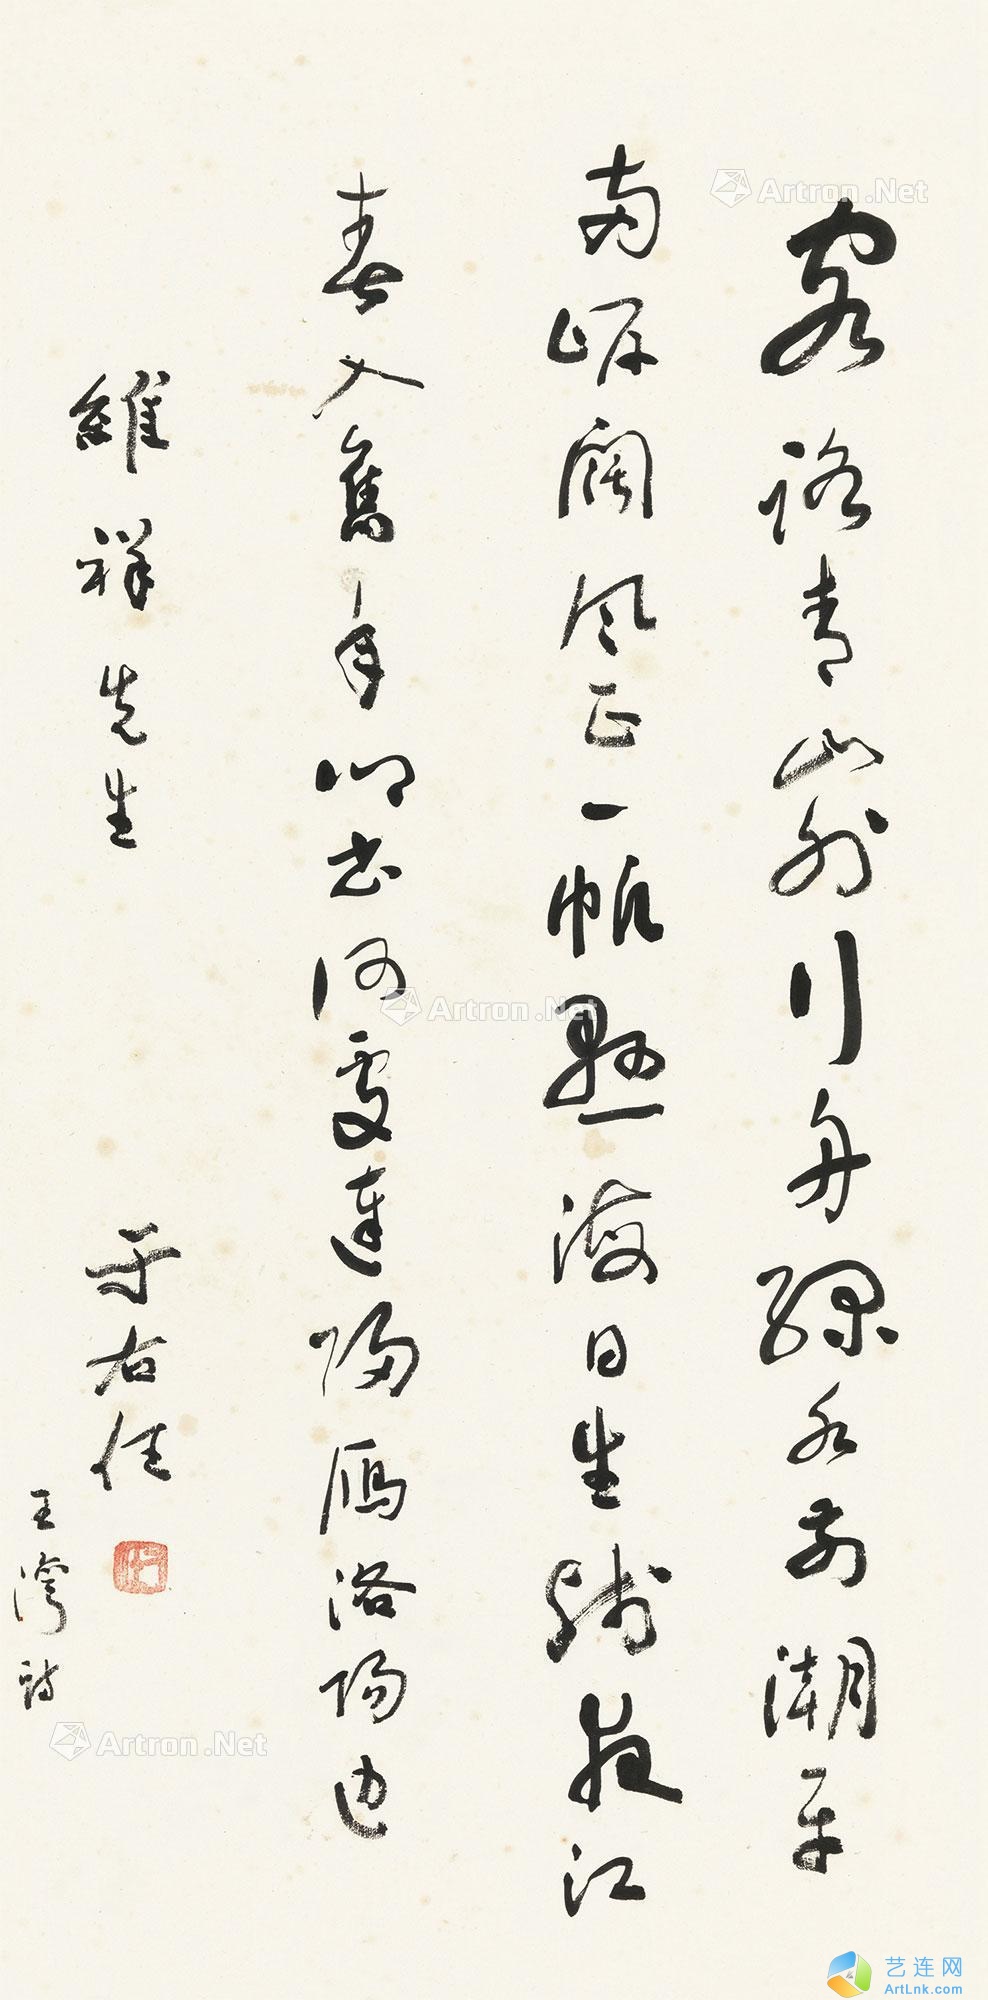 客路青山外行舟綠水前潮平
兩岸闊風正一帆懸海日生殘夜江
春入舊年鄉書何處達歸雁洛陽邊
維祥先生
于右任
王灣詩
Artron.Net
Artron.Net
Artron.Net
艺连网
ArtLnk.com